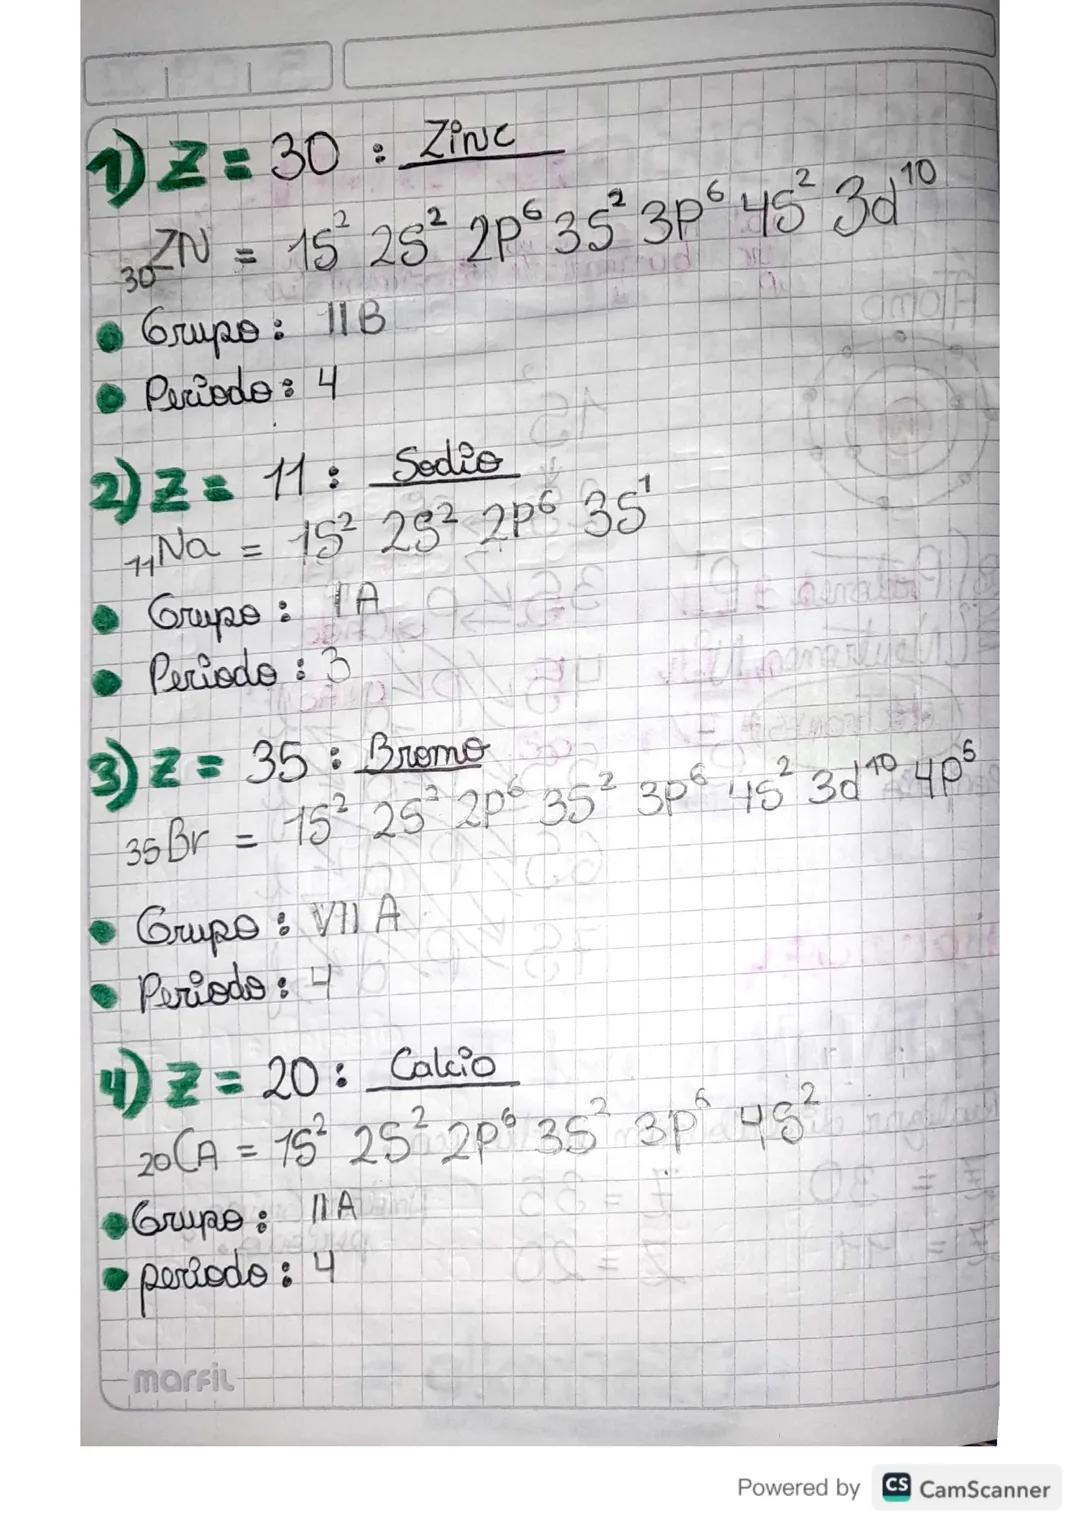 1) Z = 30 : Zinc
₃₀ZN = 1S² 2S² 2p⁶ 3S² 3p⁶ 4S² 3d¹⁰
• Grupo : IIB
• Periodo : 4
2) Z = 11 : Sodio
₁₁Na = 1S² 2S² 2p⁶ 3S¹
• Grupo : IA
• Periodo : 3
3) Z = 35 : Bromo
₃₅Br = 1S² 2S² 2p⁶ 3S² 3p⁶ 4S² 3d¹⁰ 4p⁵
• Grupo : VII A
• Periodo : 4
4) Z = 20 : Calcio
₂₀CA = 1S² 2S² 2p⁶ 3S² 3p⁶ 4S²
• Grupo : IIA
• periodo : 4
marfil
Powered by CS CamScanner